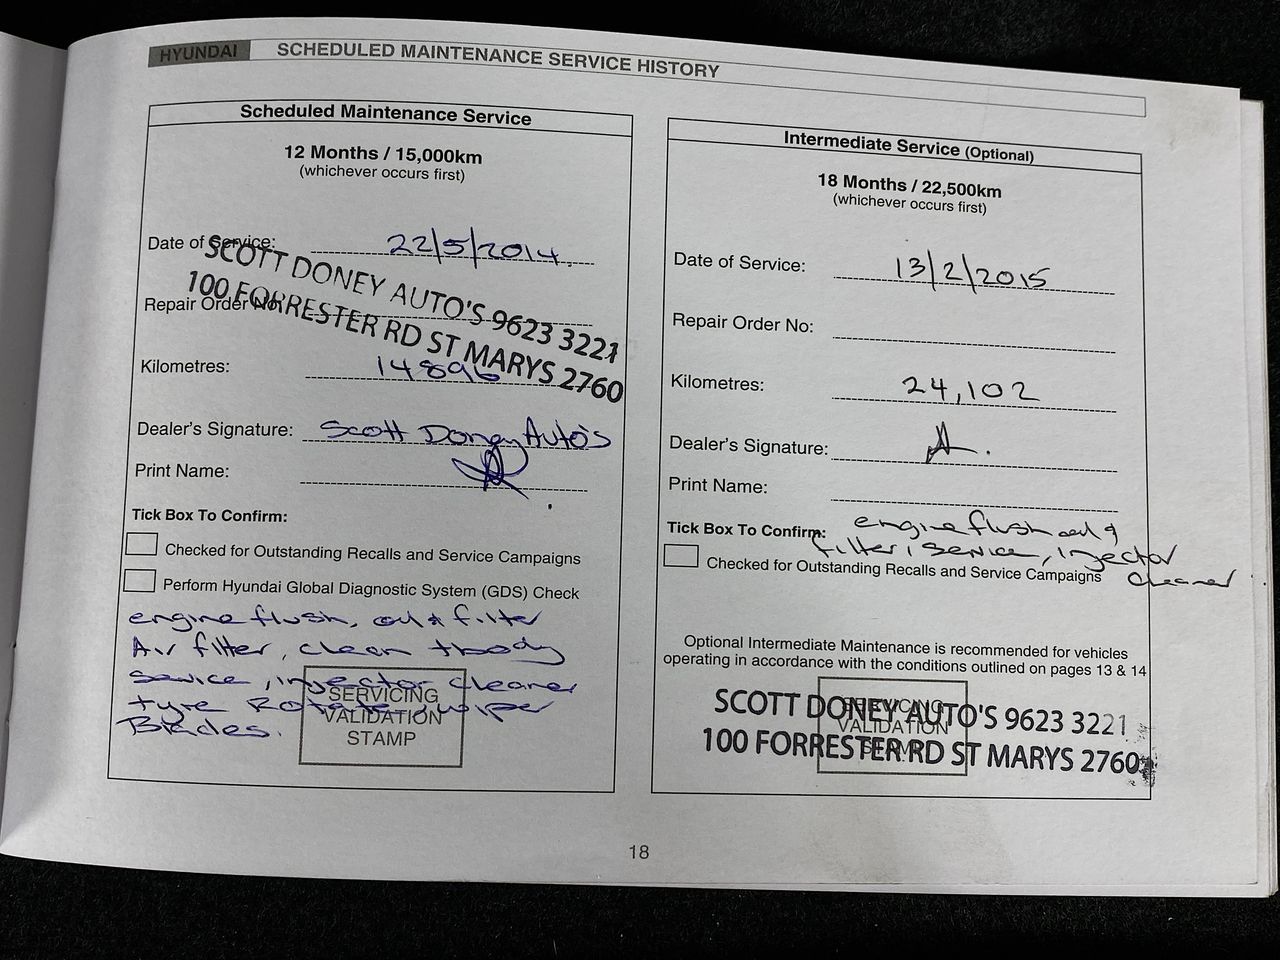 HYUNDAI SCHEDULED MAINTENANCE SERVICE HISTORY
Scheduled Maintenance Service
12 Months / 15,000km
(whichever occurs first)
Date of Service: 22/5/2014
SCOTT DONEY AUTO'S 9623 3221
100 FORRESTER RD ST MARYS 2760
Repair Order No:
Kilometres: 14896
Dealer's Signature: Scott Doney Auto's
Print Name:
Tick Box To Confirm:
Checked for Outstanding Recalls and Service Campaigns
Perform Hyundai Global Diagnostic System (GDS) Check
engine flush, oil & filter
Air filter, clean tbody
service, injector cleaner
tyre Rotate, wiper
Blades.
SERVICING
VALIDATION
STAMP
Intermediate Service (Optional)
18 Months / 22,500km
(whichever occurs first)
Date of Service: 13/2/2015
Repair Order No:
Kilometres: 24,102
Dealer's Signature:
Print Name:
Tick Box To Confirm:
engine flush oil &
filter, service, injector
cleaner
Checked for Outstanding Recalls and Service Campaigns
Optional Intermediate Maintenance is recommended for vehicles
operating in accordance with the conditions outlined on pages 13 & 14
SERVICING
VALIDATION
STAMP
SCOTT DONEY AUTO'S 9623 3221
100 FORRESTER RD ST MARYS 2760
18